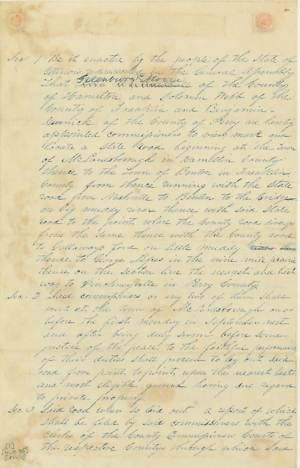 Sec 1 Be it enacted by the people of the State of
Illinois represented in the General Assembly
That of the County
of Hamilton and Solomon Webb of the
County of Franklin and Benjamin
of the County of Perry are hereby
appointed commissioners to view mark and
locate a State road beginning at the Town
of McLeansborough in Hamilton County
thence to the Town of Benton in Franklin
County from thence running with the State
road from Nashville to Benton to the Bridge
on Big muddy river thence with said State
road to the
from the same thence with the County road
to Callaways ford on little muddy
thence to George in the nine mile prairie
thence on the section line the nearest and best
way to Pinckneyville in Perry County
Sec 2 Said commissioners or any two of them shall
meet at the town of McLeansborough on or
before the first monday in September next
and after being duly sworn before some
justice of the peace to the faithful performance
of their duties shall proceed to lay out said
road from point to point upon the nearest best
and most eligible ground having due regard
to private property
Sec 3 Said road when so laid out a report of which
shall be filed by said commissioners with the
clerks of the County Commissioners Courts of
the respective Counties through which said